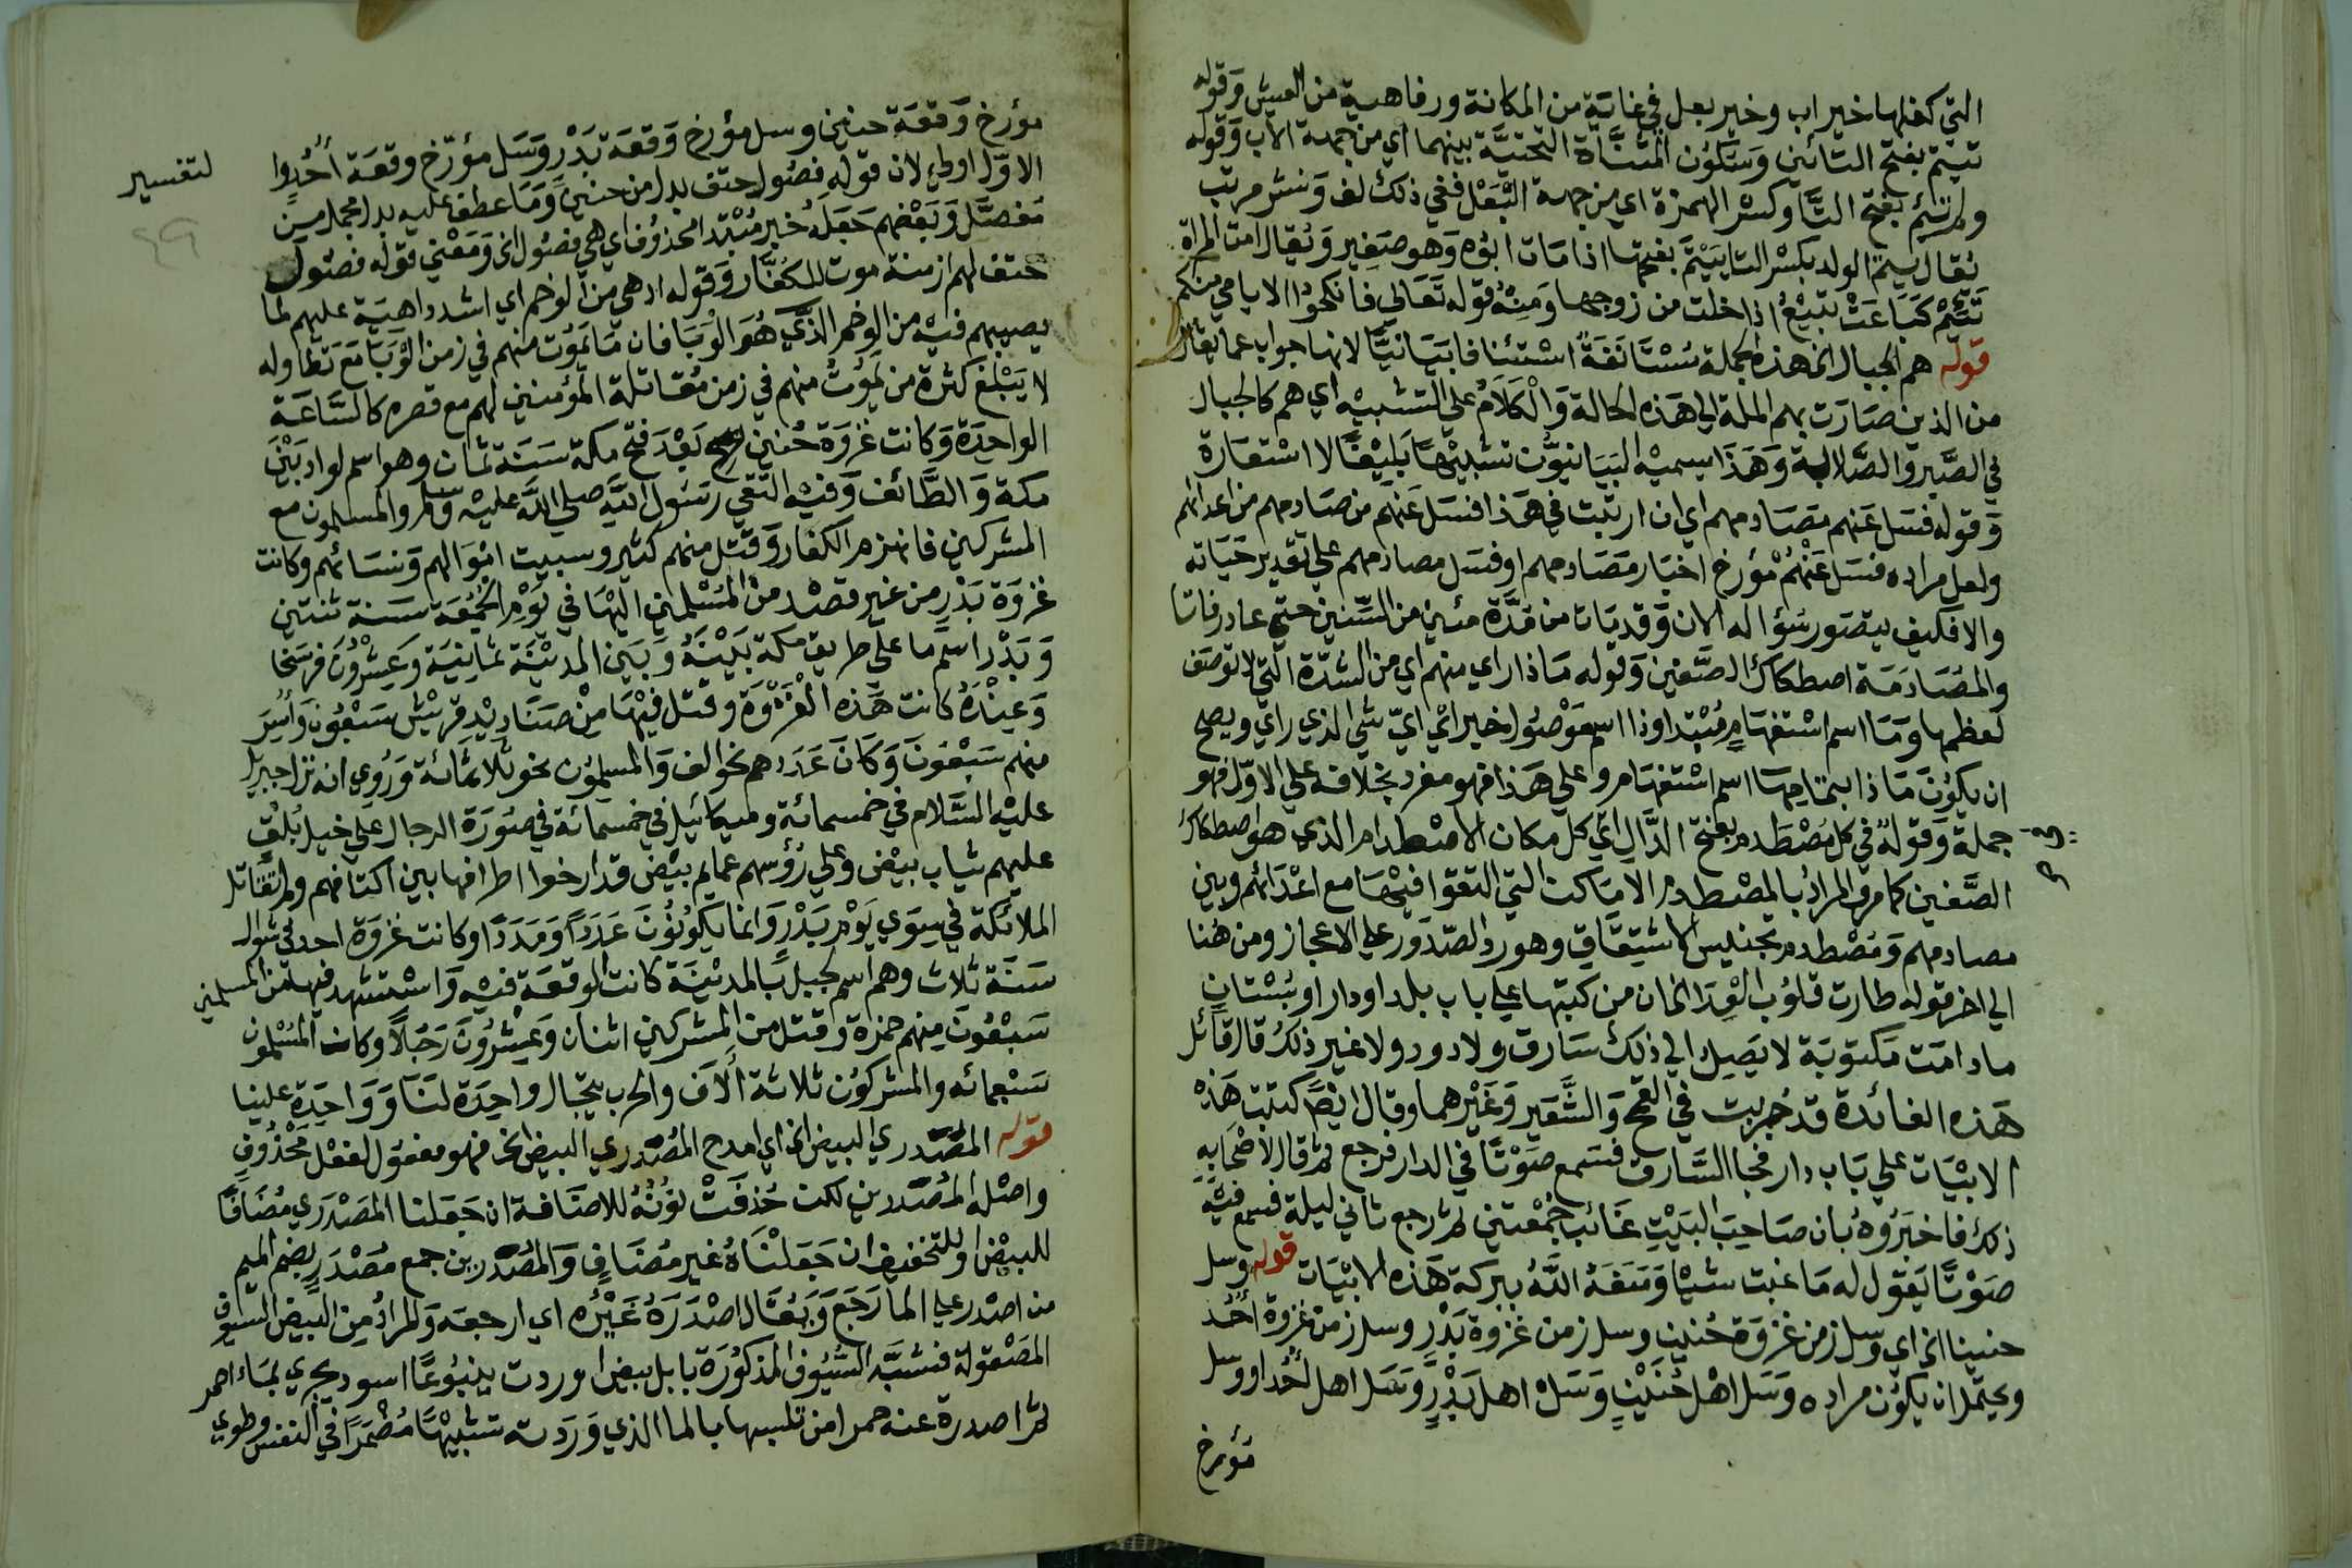 التي كفلها خير اب وخير بعل في غاية من المكانة ورفاهية من العيش وقوله
تيتم بفتح التائين وسكون المثناة التحتية بينهما اي من جهة الاب وقوله
ولم تئم بفتح التا وكسر الهمزة اي من جهة البعل ففي ذلك لف ونشر مرتب
يقال يتم الولد بكسر التا ييتم بفتحها اذا مات ابوه وهو صغير ويقال امت المراة
تئيم كباعت تبيع اذا خلت من زوجها ومنه قوله تعالي فانكحوا الايامي منكم
قوله هم الجبال الخ هذه الجملة مستانفة استئنافا بيانيا لانها جواب عما يقال
من الذين صارت بهم الملة الي هذه الحالة والكلام علي التشبيه اي هم كالجبال
في الصبر والصلابة وهذا يسميه البيانيون تشبيها بليغا لا استعارة
وقوله فسل عنهم مصادمهم اي ان ارتبت في هذا فسل عنهم من صادمهم من اعدائهم
ولعل مراده فسل عنهم مؤرخ اخبار مصادمهم او فسل مصادمهم علي تقدير حياته
والا فكيف يتصور سؤاله الان وقد مات من مدة مئين من السنين حتي عاد رفاتا
والمصادمة اصطكاك الصفين وقوله ماذا راي منهم اي من الشدة التي لا توصف
لعظمها وما اسم استفهام مبتدا وذا اسم موصول خبر اي اي شي الذي راي ويصح
ان يكون ماذا بتمامها اسم استفهام وعلي هذا فهو مفرد بخلافه علي الاول فهو
جملة وقوله في كل مصطدم بفتح الدال اي كل مكان الاصطدام الذي هو اصطكاك
الصفين كما مر والمراد بالمصطدم الاماكن التي التقوا فيها مع اعدائهم وبين
مصادمهم ومصطدم تجنيس الاشتقاق وهو رد الصدور علي الاعجاز ومن هنا
الي اخر قوله طارت قلوب العدا الخ ان من كتبها علي باب بلد او دار او بستان
ما دامت مكتوبة لا يصل الي ذلك سارق ولا دود ولا غير ذلك قال قائل
هذه الفائدة قد جربت في القمح والشعير وغيرهما وقال ايضا كتبت هذه
الابيات علي باب دار فجا السارق فسمع صوتا في الدار فرجع ثم قال لاصحابه
ذلك فاخبروه بان صاحب البيت غائب جمعتين ثم رجع ثاني ليلة فسمع فيه
صوتا يقول له ما غبت شيا ومنعه الله ببركة هذه الابيات قوله وسل
حنينا الخ اي وسل زمن غزوة حنين وسل زمن غزوة بدر وسل زمن غزوة احد
ويحتمل ان يكون مراده وسل اهل حنين وسل اهل بدر وسل اهل احد او وسل
مؤرخ
مؤرخ وقعة حنين وسل مؤرخ وقعة بدر وسل مؤرخ وقعة احد و
الاول اولي لان قوله فصول حتف بدل من حنين وما عطف عليه بدل مجمل من
لتفسير
٤٩
مفصل وبعضهم جعله خبر مبتدا محذوف اي هي فصول الخ ومعني قوله فصول
حتف لهم ازمنة موت للكفار وقوله ادهي من الوخم اي اشد داهية عليهم لما
يصيبهم فيه من الوخم الذي هو الوبا فان ما يموت منهم في زمن الوبا مع تطاوله
لا يبلغ كثرة من يموت منهم في زمن مقاتلة المؤمنين لهم مع قصره كالساعة
الواحدة وكانت غزوة حنين بعد فتح مكة سنة ثمان وهو اسم لواد بين
مكة والطائف وفيه التقي رسول الله صلي الله عليه وسلم والمسلمون مع
المشركين فانهزم الكفار وقتل منهم كثير وسبيت اموالهم ونسائهم وكانت
غزوة بدر من غير قصد من المسلمين اليها في يوم الجمعة سنة ثنتين
وبدر اسم ما علي طريق مكة بينه وبين المدينة ثمانية وعشرون فرسخا
وعنده كانت هذه الغزوة وقتل فيها من صناديد قريش سبعون واسر
منهم سبعون وكان عددهم نحو الف والمسلمون نحو ثلاثمائة وروي انه نزل جبريل
عليه السلام في خمسمائة وميكائيل في خمسمائة في صورة الرجال علي خيل بلق
عليهم ثياب بيض وعلي رؤسهم عمايم بيض قد ارخوا اطرافها بين اكتافهم ولم تقاتل
الملائكة في سوي يوم بدر وانما يكونون عددا ومددا وكانت غزوة احد في شوال
سنة ثلاث وهم اسم لجبل بالمدينة كانت الوقعة فيه واستشهد فيها من المسلمين
سبعون منهم حمزة وقتل من المشركين اثنان وعشرون رجلا وكان المسلمون
سبعمائه والمشركون ثلاثة الاف والحرب سجال واحدة لنا وواحدة علينا
قوله المصدري البيض الخ اي امدح المصدري البيض الخ فهو مفعول لفعل محذوف
واصله المصدرين لكن حذفت نونه للاضافة ان جعلنا المصدري مضافا
للبيض او للتخفيف ان جعلناه غير مضاف والمصدرين جمع مصدر بضم الميم
من اصدر علي الما رجع ويقال اصدره غيره اي ارجعه والمراد من البيض السيوف
المصقولة فشبه السيوف المذكورة بابل بيض اوردت ينبوعا اسود يجري بماء احمر
ثم اصدرة عنه حمرا من تلبسها بالما الذي وردته تشبيها مضمرا في النفس وطوي